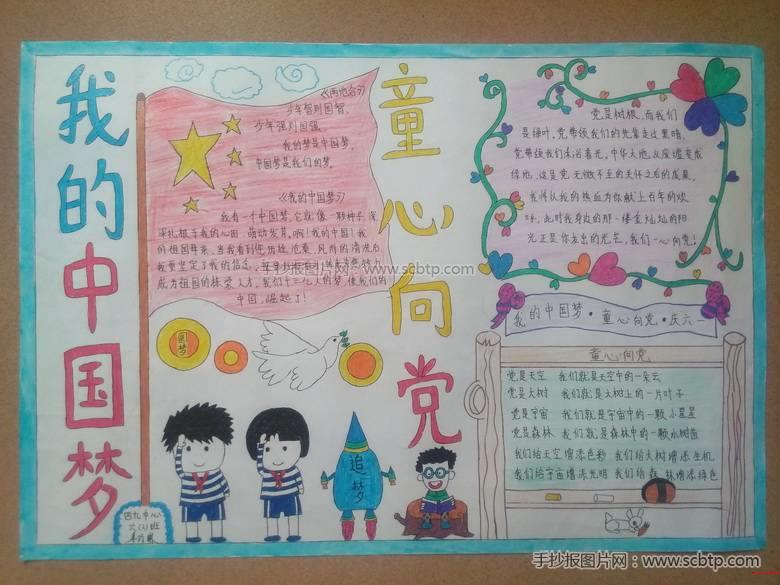 我的中国梦
童心向党
少年智则国智,
少年强则国强
我的梦是中国梦,
中国梦是我们的梦。
《我的中国梦》
我有一个中国梦,它就像一颗种子,深
深扎根于我的心田,萌动发芽。啊!我的中国!我
的祖国母亲,当我看到
我更坚定了我的信念,
成为祖国的栋梁人才,我们十三亿人的梦,使我们的
中国,崛起了!
手抄报图片网:www.scbtp.com
圆梦
追梦
党是树根,而我们
是绿叶,党带领我们的先辈走过黑暗,
党带领我们沐浴春光,中华大地,从废墟变成
绿地,这是党无微不至的关怀之后的成果。
我将以我的热血为你献上百年的欢
呼,此时我身边的那一缕金灿灿的阳
光正是你发出的光芒,我们一心向党!
我的中国梦·童心向党·庆六一
童心向党
党是天空 我们就是天空中的一朵云
党是大树 我们就是大树上的一片叶子
党是宇宙 我们就是宇宙中的一颗小星星
党是森林 我们就是森林中的一颗小树苗
我们给天空增添色彩 我们给大树增添生机
我们给宇宙增添光明 我们给森林增添绿色
四九中心
六(1)班
手抄报图片网:www.scbtp.com